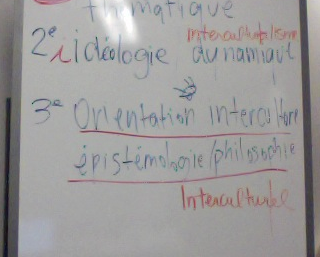 thématique
Interculturalisme
2e idéologie dynamique
3e Orientation intercultu
épistémologie/philosophie
Interculturel